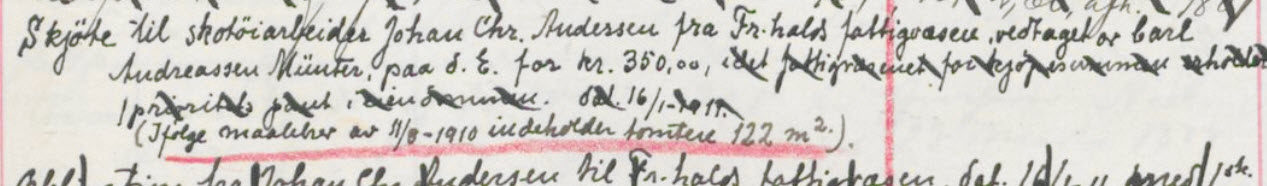 Skjöte til skotöiarbeider Johan Chr. Andersen fra Fr.halds fattigvæsen, vedtaget av Carl
Andreassen Münter, paa d. E. for kr. 350,00, idet fattigvæsenet for kjöpesummen erholder
1 prioritets pant i eiendommen. dat. 16/1-1911.
(Ifölge maalebrev av 11/8-1910 indeholder tomten 122 m².).
Johan Chr. Andersen til Fr.halds fattigvæsen, dat. 16/1